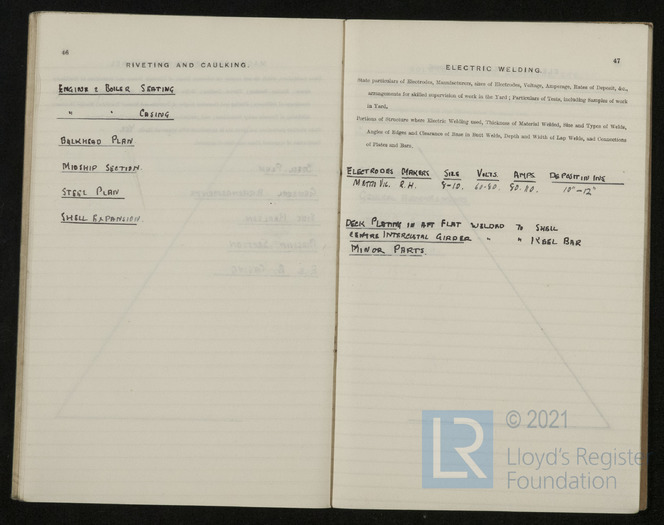 46
RIVETING AND CAULKING.
ENGINE & BOILER SEATING
" " CASING
BULKHEAD PLAN
MIDSHIP SECTION.
STEEL PLAN
SHELL EXPANSION.
47
ELECTRIC WELDING.
State particulars of Electrodes, Manufacturers, sizes of Electrodes, Voltage, Amperage, Rates of Deposit, &c.,
arrangements for skilled supervision of work in the Yard; Particulars of Tests, including Samples of work
in Yard.
Portions of Structure where Electric Welding used, Thickness of Material Welded, Size and Types of Welds,
Angles of Edges and Clearance of Ends in Butt Welds, Depth and Width of Lap Welds, and Connections
of Plates and Bars.
ELECTRODES MAKERS SIZE VOLTS. AMPS. DEPOSIT IN INS
METRO VIC. R.H. 8-10. 60-90. 10"-12"
DECK PLATING IN AFT FLAT WELDED TO SHELL
CENTRE INTERCOSTAL GIRDER " " KEEL BAR
MINOR PARTS.
LR
© 2021
Lloyd's Register
Foundation